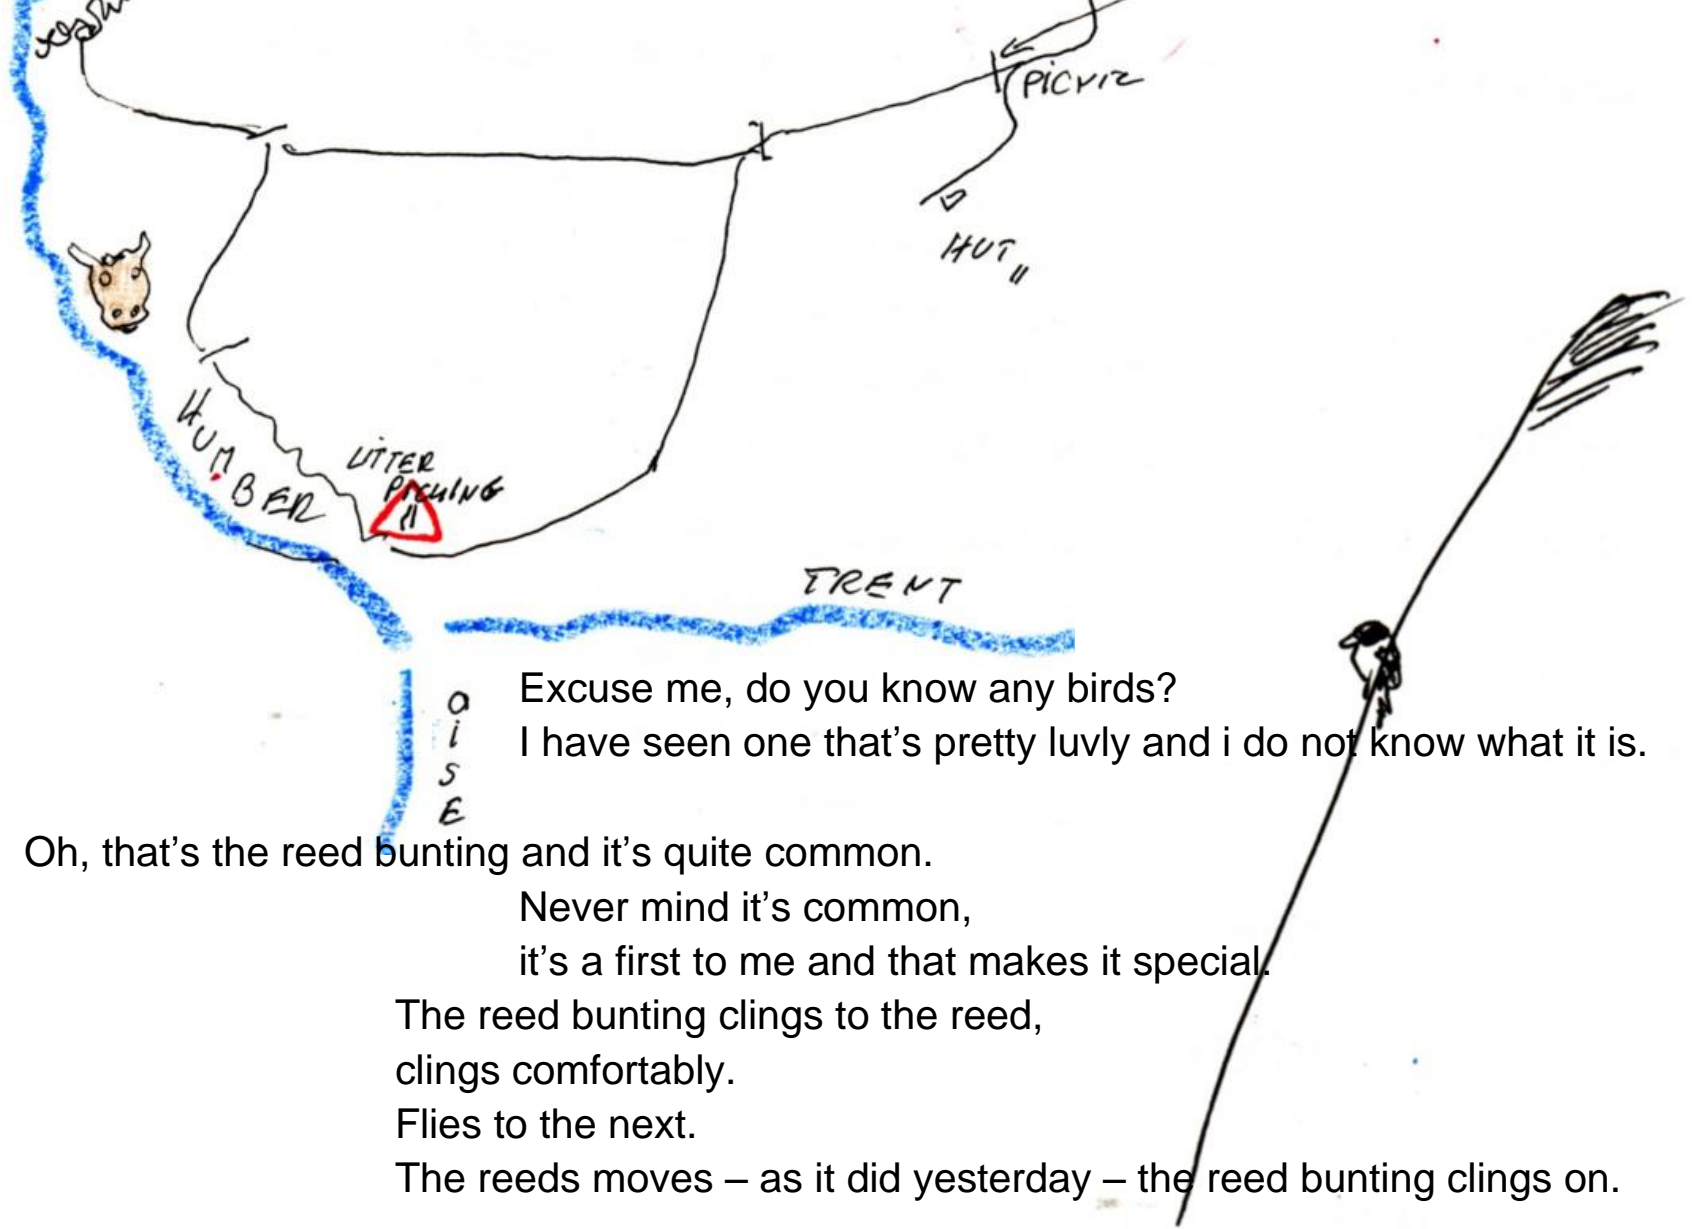 PICNIC
HUT
HUMBER
LITTER
PICKING
!!
TRENT
OISE
Excuse me, do you know any birds?
I have seen one that’s pretty luvly and i do not know what it is.
Oh, that’s the reed bunting and it’s quite common.
Never mind it’s common,
it’s a first to me and that makes it special.
The reed bunting clings to the reed,
clings comfortably.
Flies to the next.
The reeds moves – as it did yesterday – the reed bunting clings on.